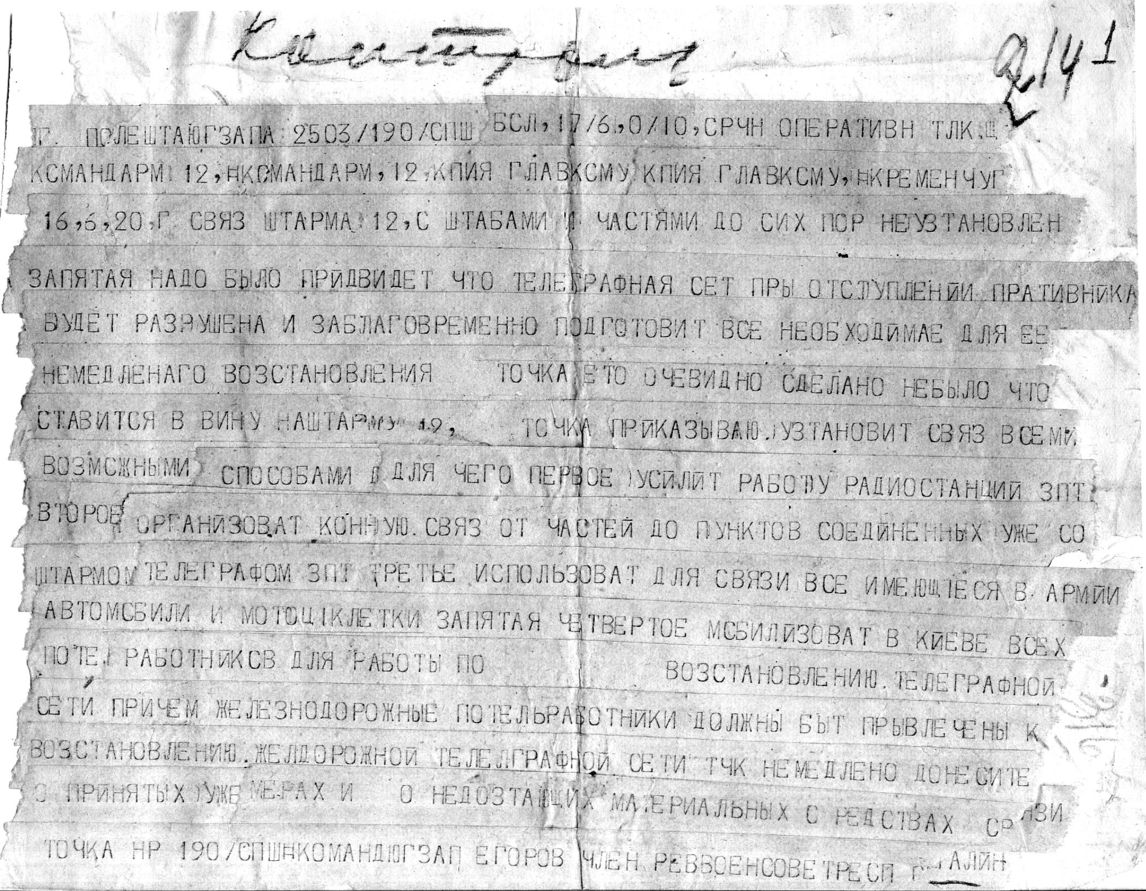 Контроль
214 1
Г. ПОЛЕШТАЮГЗАПА 2503/190/СПШ БСЛ, 17/6,0/10, СРЧН ОПЕРАТИВН ТЛК
КСМАНДАРМ 12, НКСМАНДАРМ, 12, КПИЯ ГЛАВКСМУ КПИЯ ГЛАВКСМУ, НКРЕМЕНЧУГ
16,6,20,Г СВЯЗ ШТАРМА 12, С ШТАБАМИ И ЧАСТЯМИ ДО СИХ ПОР НЕУЗТАНОВЛЕН
ЗАПЯТАЯ НАДО БЫЛО ПРИДВИДЕТ ЧТО ТЕЛЕГРАФНАЯ СЕТ ПРЫ ОТСТУПЛЕНИИ ПРАТИВНИКА
БУДЕТ РАЗРУШЕНА И ЗАБЛАГОВРЕМЕННО ПОДГОТОВИТ ВСЕ НЕОБХОДИМАЕ ДЛЯ ЕЕ
НЕМЕДЛЕНАГО ВОЗСТАНОВЛЕНИЯ ТОЧКА ЕТО ОЧЕВИДНО СДЕЛАНО НЕБЫЛО ЧТО
СТАВИТСЯ В ВИНУ НАШТАРМУ 12, ТОЧКА ПРИКАЗЫВАЮ УЗТАНОВИТ СВЯЗ ВСЕМИ
ВОЗМСЖНЫМИ СПОСОБАМИ ДЛЯ ЧЕГО ПЕРВОЕ УСИЛИТ РАБОТУ РАДИОСТАНЦИЙ ЗПТ
ВТОРОЕ ОРГАНИЗОВАТ КОННУЮ СВЯЗ ОТ ЧАСТЕЙ ДО ПУНКТОВ СОЕДИНЕННЫХ УЖЕ СО
ШТАРМОМ ТЕЛЕГРАФОМ ЗПТ ТРЕТЬЕ ИСПОЛЬЗОВАТ ДЛЯ СВЯЗИ ВСЕ ИМЕЮЩИЕСЯ В АРМИИ
АВТОМСБИЛИ И МОТОЦИКЛЕТКИ ЗАПЯТАЯ ЧЕТВЕРТОЕ МСБИЛИЗОВАТ В КИЕВЕ ВСЕХ
ПОТЕЛ РАБОТНИКСВ ДЛЯ РАБОТЫ ПО ВОЗСТАНОВЛЕНИЮ ТЕЛЕГРАФНОЙ
СЕТИ ПРИЧЕМ ЖЕЛЕЗНОДОРОЖНЫЕ ПОТЕЛЬРАБОТНИКИ ДОЛЖНЫ БЫТ ПРЫВЛЕЧЕНЫ К
ВОЗСТАНОВЛЕНИЮ ЖЕЛДОРОЖНОЙ ТЕЛЕЛГРАФНОЙ СЕТИ ТЧК НЕМЕДЛЕНО ДОНЕСИТЕ
О ПРИНЯТЫХ УЖЕ МЕРАХ И О НЕДОЗТАЮЩИХ МАТЕРИАЛЬНЫХ С РЕДСТВАХ
ТОЧКА НР 190/СПШ НКОМАНДЮГЗАП ЕГОРОВ ЧЛЕН РЕВВОЕНСОВЕТРЕСП